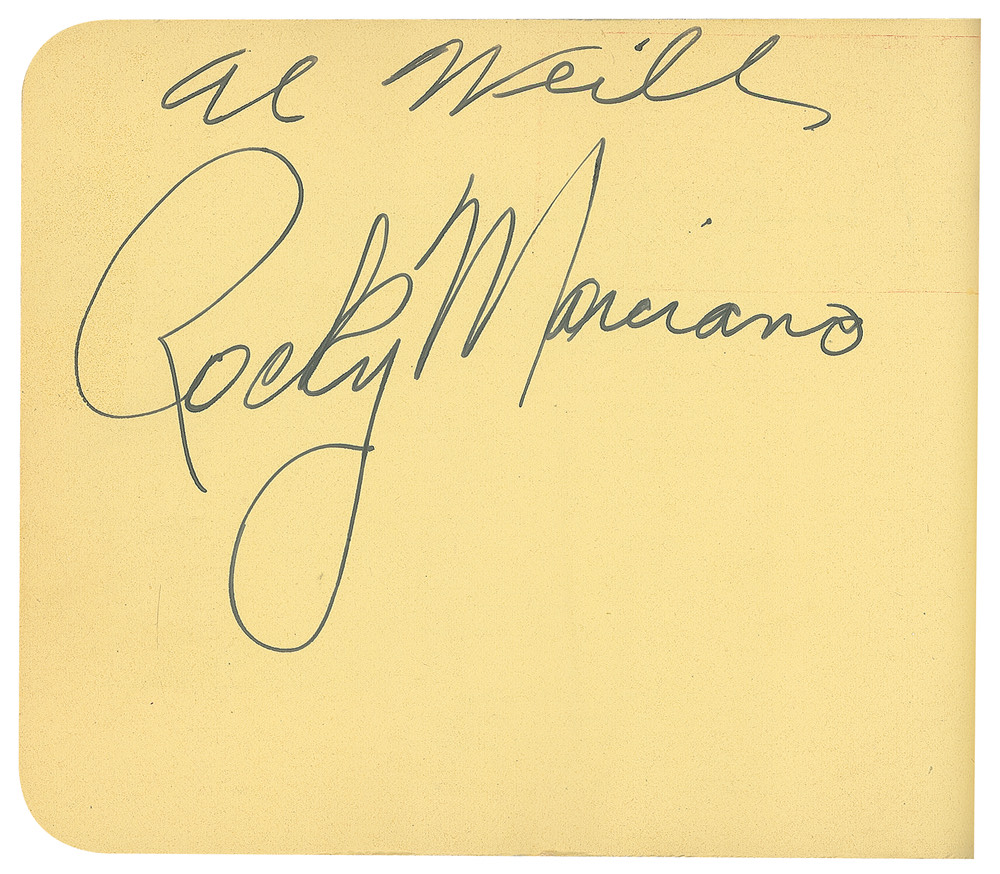 Al Weill
Rocky Marciano